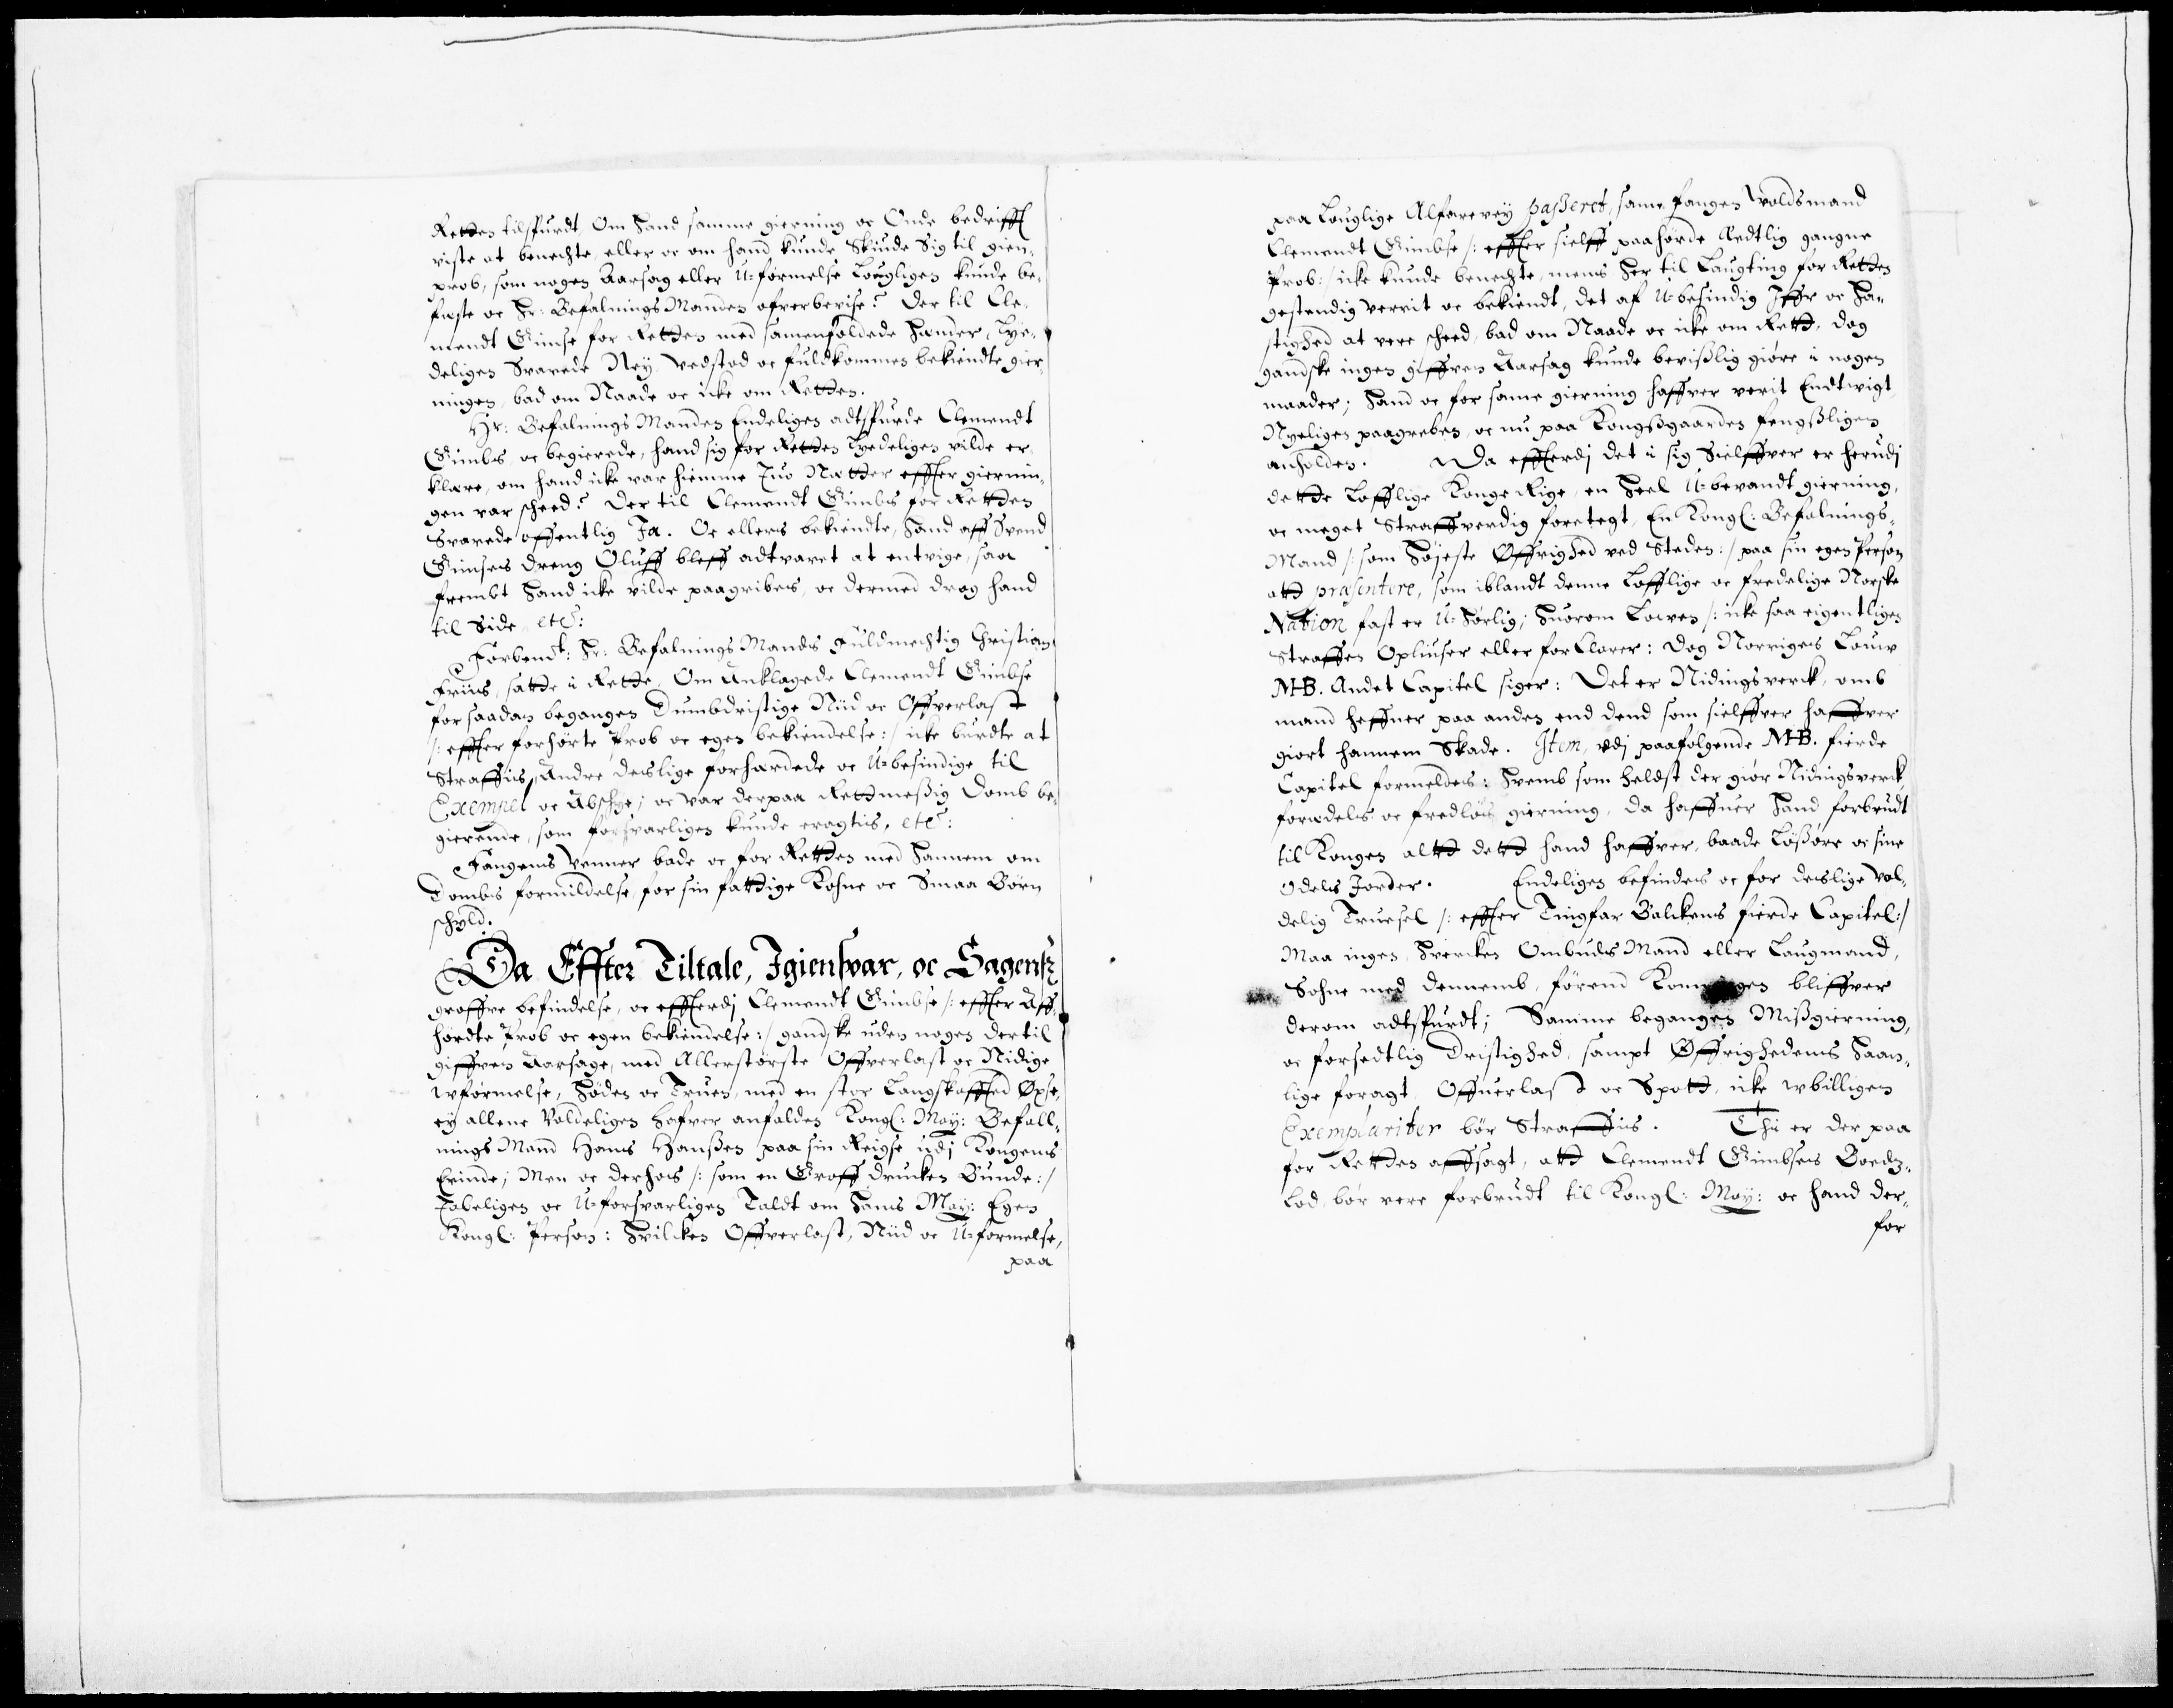 Retten tilspurdt, Om Hand samme gierning oc Onde bedrifft
viste at benechte, eller oc om hand kunde Skiude Sig til gien-
prob, som nogen Aarsag eller U-formelse Lougligen kunde be-
feste oc Hr: Befalnings Manden ofverbevise? Der til Cle-
mendt Gimse for Retten med samenfoldede Hænder, Tye-
deligen Svarede Ney, vedstod oc fuldkommen bekiendte gier-
ningen, bad om Naade oc icke om Retten.
Hr: Befalnings Manden Endeligen adtspurde Clemendt
Gimbs, oc begierede, hand sig for Retten tyedeligen vilde er-
klære, om hand icke var hiemme Tuo Netter effter giernin-
gen var scheed? Der til Clemendt Gimbs for Retten
Svarede offentlig Ja. Oc ellers bekiendte, Hand aff Svend
Gimses dreng Oluff bleff adtvaret at entvige, saa
frembt Hand icke vilde paagribes, oc dermed drog hand
til Side, etc:
Forbendt: Hr: Befalnings Mands Fuldmechtig Christian
Friis, satte i Rette, Om Anklagede Clemendt Gimbse
for saadan begangen Dumbdristige Niid oc Offverlast
/: effter forhørte Prob oc egen bekiendelse :/ icke burdte at
Straffis, Andre deslige forhardede oc U-besindige til
Exempel oc Abschye; oc var derpaa Rettmessig Domb be-
gierende, som forsvarligen kunde eragtis, etc:
Fangens venner bade oc for Retten med Hannem om
Dombs formildelse, for sin fattige Kohne oc Smaa Børn
schyld.
Da Effter Tiltale, Igiensvar, oc Sagens
groffve befindelse, oc effterdj Clemendt Gimbse /: effter Aff-
hørdte Prob oc egen bekiendelse :/ gandske uden nogen dertil
giffven Aarsage, med Allerstørste Offverlast oc Nidige
uformelse, Høden oc Truen, med en stor Langskafftet Øxse,
ey allene Voldeligen hafver anfalden Kongl: May: Befall-
nings Mand Hans Hanssen paa sin Reigse udj Kongens
Erinde; Men oc derhos /: som en Groff drucken Bunde :/
Tobeligen oc U-forsvarligen Taldt om Hans May: Egen
Kongl: Person: Hvilcken Offverlast, Niid oc U-formelse,
paa
paa Louglige Alfarevey passeret, same fangen Voldsmand
Clemendt Gimbse /: effter sielff paahørde Redtlig gangne
Prob :/ icke kunde benechte, mens Her til Laugting for Retten
gestendig verrit oc bekiendt, det af U-besindig Iffr oc Ha-
stighed at vere scheed, bad om Naade oc icke om Rett, dog
gandske ingen giffven Aarsag kunde bevisslig giøre i nogen
maader; Hand oc for same gierning haffver verit Endtvigt,
Nyeligen paagreben, oc nu paa Kongssgaarden fengssligen
anholden. Da effterdj det i sig Sielffver er herudj
dette Loflige Konge Rige, en Heel U-bevandt gierning,
oc meget Straffverdig foretegt, En Kongl: Befalnings-
Mand /: som Høieste Øffrighed ved Steden :/ paa sin egen Person
att præsentere, som iblandt denne Lofflige oc fredelige Norske
Nation fast er U-Hørlig; Huorom Loven /: icke saa eigentligen
Straffen Opliuser eller forclarer: Dog Norriges Louv
M-B. Andet Capitel siger: Det er Nidingsverck, omb
mand heffner paa anden end dend som sielffver haffver
giort hannem Skade. Item, udj paafolgende M-B. fierde
Capitel formeldes: Hvemb som heldst der giør Nidingsverck,
forædels oc fredløs gierning, da haffuer Hand forbrudt
til Kongen altt dett hand haffver, baade Løssøre oc sine
Odels Jorder. Endeligen befindes oc for deslige Vol-
delig Truesel /: effter Tingfar Balckens fierde Capitel :/
Maa ingen, Hvercken Ombuds Mand eller Laugmand,
Sohne med dennemb, førend Konningen bliffver
derom adtspurdt; Samme begangen Missgierning,
oc forsedtlig Dristighed, sampt Øffrighedens Haan-
lige foragt, Offuerlast oc Spott, icke ubilligen
Exemplariter bør Straffis. Thi er der paa
for Retten affsagt, att Clemendt Gimbses Boedz-
Lod, bør vere forbrudt til Kongl: May: oc hand der-
for